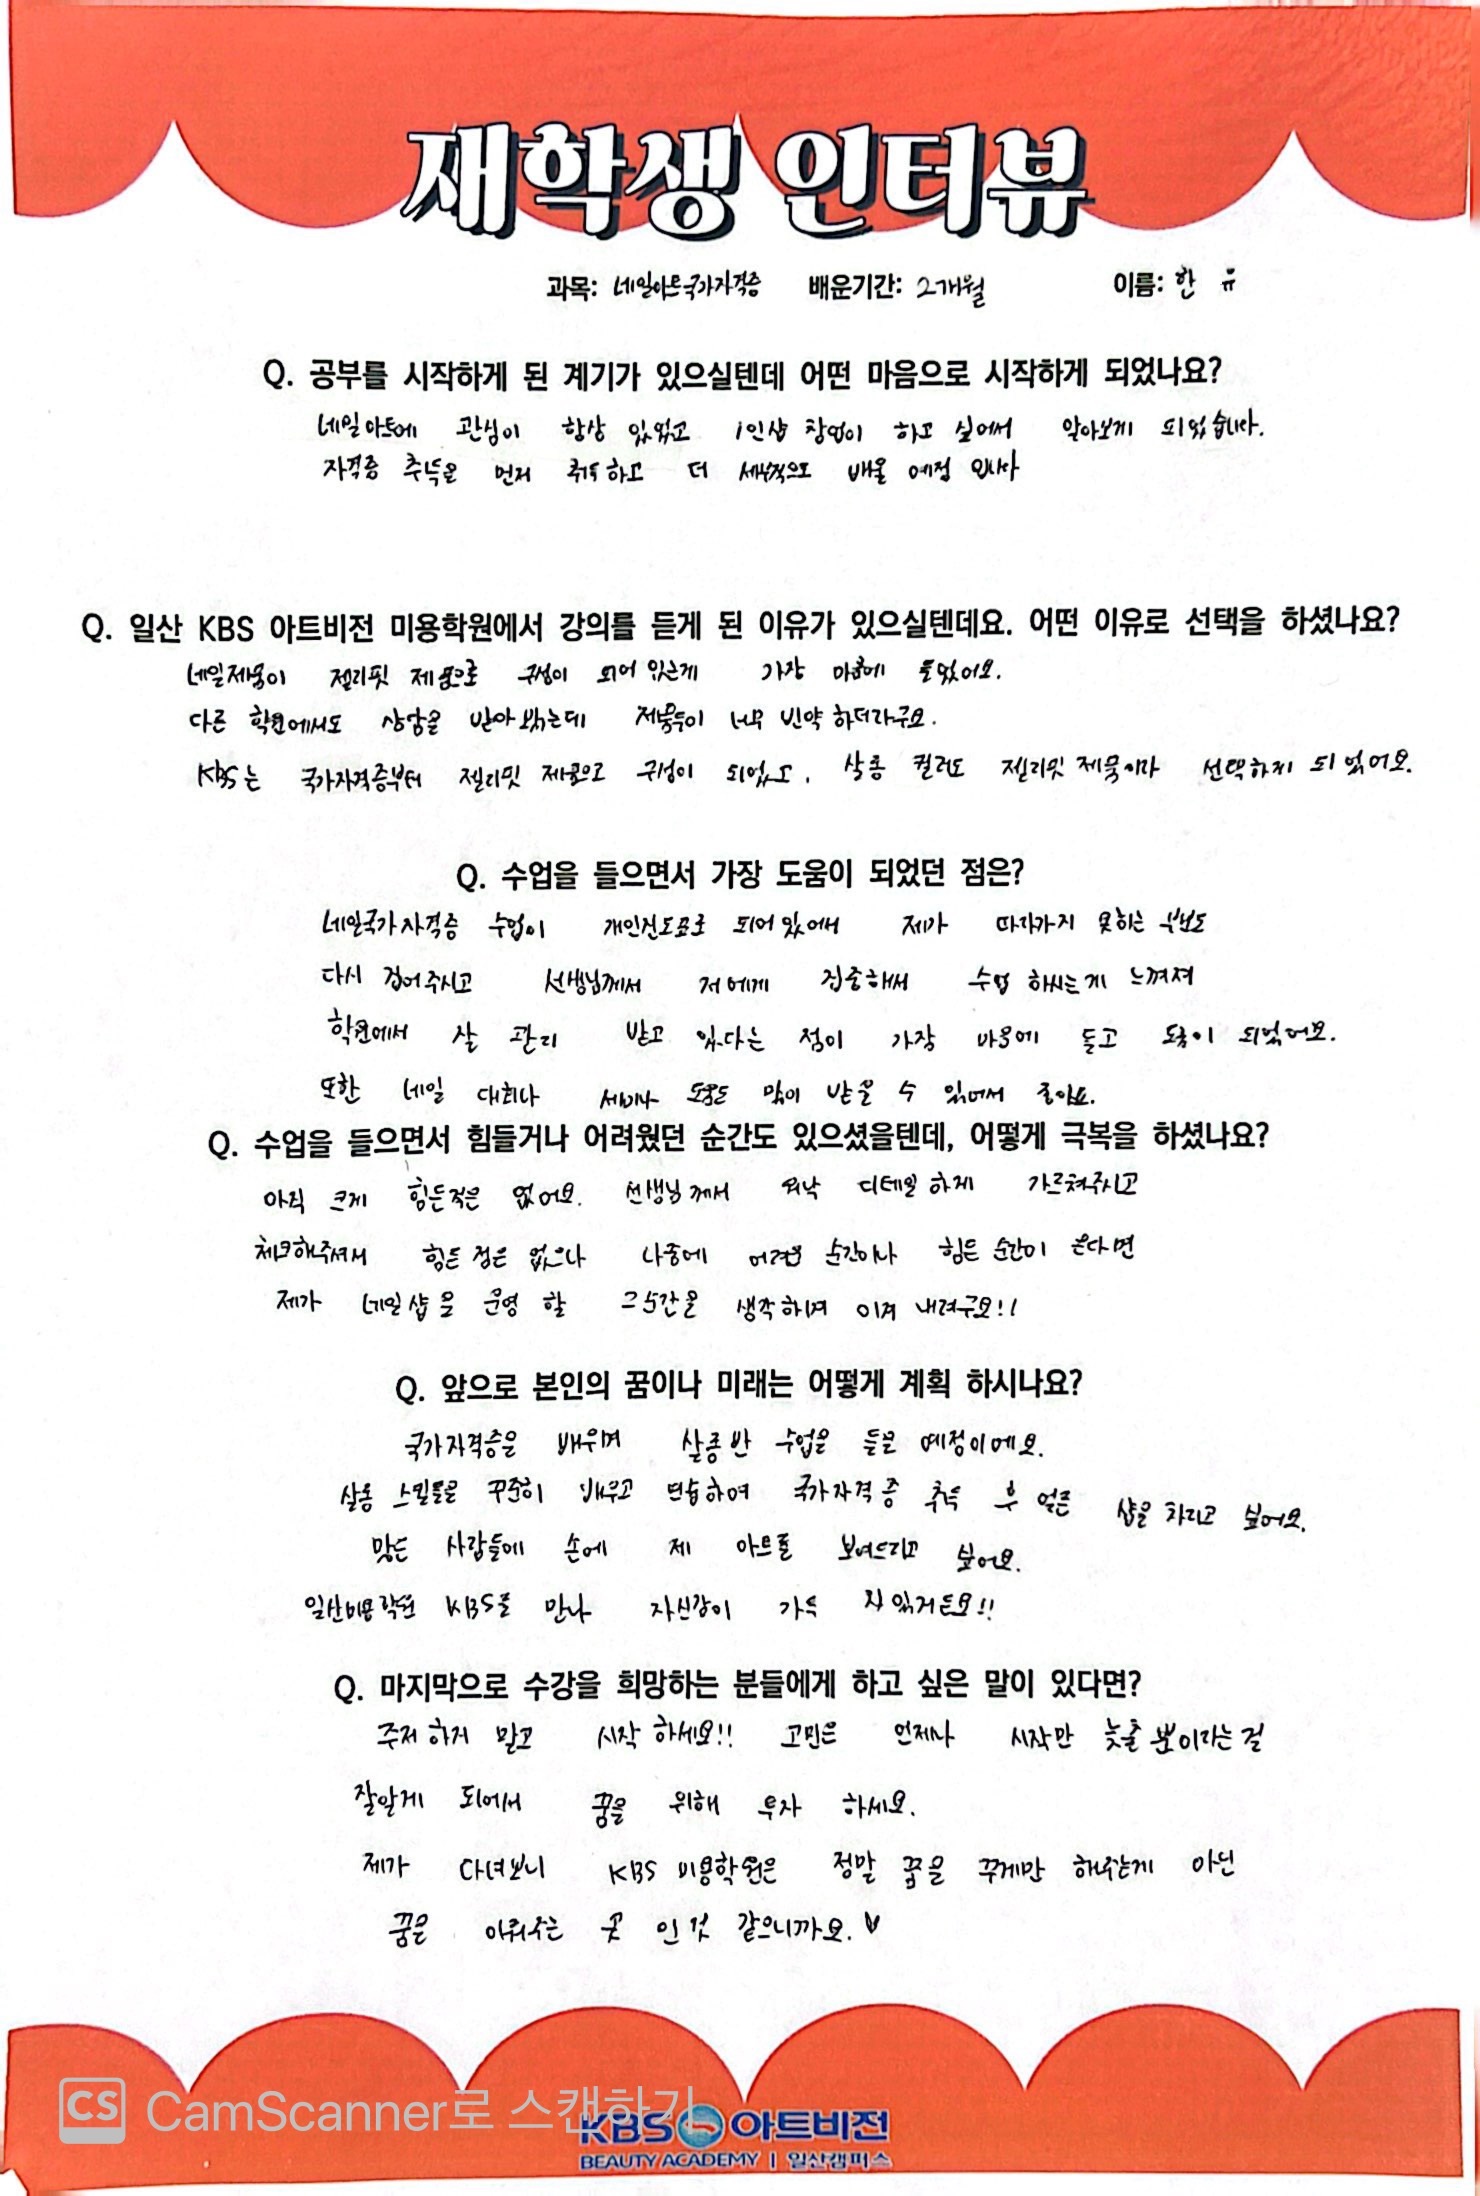 재학생 인터뷰
과목: 네일아트국가자격증 배운기간: 2개월 이름: 한 유
Q. 공부를 시작하게 된 계기가 있으실텐데 어떤 마음으로 시작하게 되었나요?
네일아트에 관심이 항상 있었고 1인샵 창업이 하고 싶어서 알아보게 되었습니다.
자격증 취득을 먼저 취득하고 더 세부적으로 배울 예정 입니다
Q. 일산 KBS 아트비전 미용학원에서 강의를 듣게 된 이유가 있으실텐데요. 어떤 이유로 선택을 하셨나요?
네일제품이 젤리핏 제품으로 구성이 되어 있는게 가장 마음에 들었어요.
다른 학원에서도 상담을 받아 봤는데 제품들이 너무 빈약 하더라구요.
KBS는 국가자격증부터 젤리핏 제품으로 구성이 되었고, 살롱 컬러도 젤리핏 제품이라 선택하게 되었어요.
Q. 수업을 들으면서 가장 도움이 되었던 점은?
네일국가자격증 수업이 개인진도표로 되어 있어서 제가 따라가지 못하는 부분도
다시 짚어주시고 선생님께서 저에게 집중해서 수업 하시는게 느껴져
학원에서 잘 관리 받고 있다는 점이 가장 마음에 들고 도움이 되었어요.
또한 네일 대회나 세미나 도움도 많이 받을 수 있어서 좋아요.
Q. 수업을 들으면서 힘들거나 어려웠던 순간도 있으셨을텐데, 어떻게 극복을 하셨나요?
아직 크게 힘든적은 없어요. 선생님께서 워낙 디테일하게 가르쳐주시고
체크해주셔서 힘든 점은 없으나 나중에 어려운 순간이나 힘든 순간이 온다면
제가 네일샵을 운영 할 그순간을 생각하며 이겨 내려구요!!
Q. 앞으로 본인의 꿈이나 미래는 어떻게 계획 하시나요?
국가자격증을 배우며 살롱반 수업을 들을 예정이에요.
살롱 스킬들을 꾸준히 배우고 연습하여 국가자격증 취득 후 얼른 샵을 차리고 싶어요.
많은 사람들에 손에 제 아트를 보여드리고 싶어요.
일산미용학원 KBS를 만나 자신감이 가득 차있거든요!!
Q. 마지막으로 수강을 희망하는 분들에게 하고 싶은 말이 있다면?
주저 하지 말고 시작 하세요!! 고민은 언제나 시작만 늦출 뿐이라는걸
잘알게 되어서 꿈을 위해 투자 하세요.
제가 다녀보니 KBS 미용학원은 정말 꿈을 꾸게만 해주는게 아닌
꿈을 이뤄주는 곳 인것 같으니까요.
CS CamScanner로 스캔하기
KBS 아트비전
BEAUTY ACADEMY | 일산캠퍼스